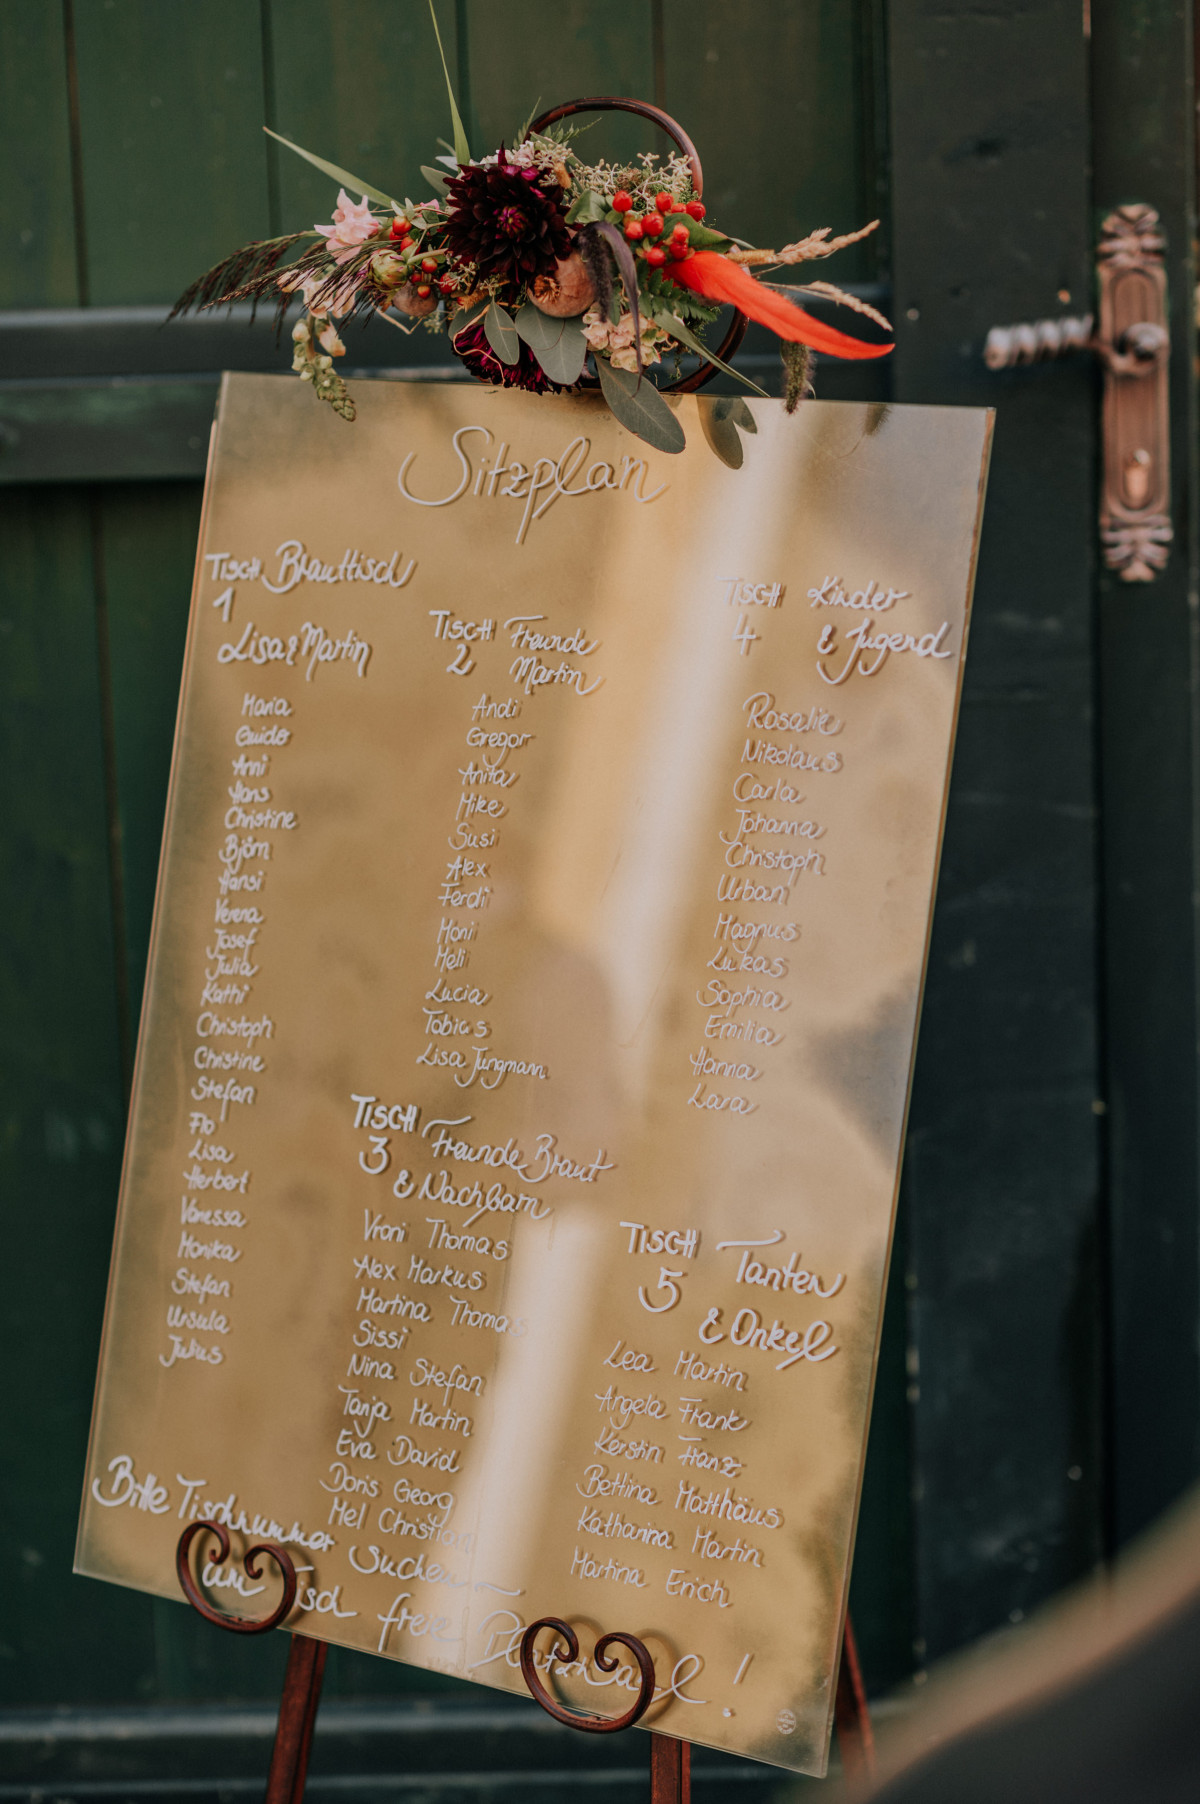 Sitzplan
TISCH Brauttisch
1
Lisa & Martin
Maria
Guido
Anni
Hans
Christine
Björn
Hansi
Verena
Josef
Julia
Kathi
Christoph
Christine
Stefan
Flo
Lisa
Herbert
Vanessa
Monika
Stefan
Ursula
Julius
TISCH Freunde
2 Martin
Andi
Gregor
Anita
Mike
Susi
Alex
Ferdi
Moni
Meli
Lucia
Tobias
Lisa Jungmann
TISCH Freunde Braut
3 & Nachbarn
Vroni Thomas
Alex Markus
Martina Thomas
Sissi
Nina Stefan
Tanja Martin
Eva David
Doris Georg
Mel Christian
TISCH Kinder
4 & Jugend
Rosalie
Nikolaus
Carla
Johanna
Christoph
Urban
Magnus
Lukas
Sophia
Emilia
Hanna
Lara
TISCH Tanten
5 & Onkel
Lea Martin
Angela Frank
Kerstin Franz
Bettina Matthäus
Katharina Martin
Martina Erich
Bitte Tischnummer suchen -
am Tisch freie Platzwahl !